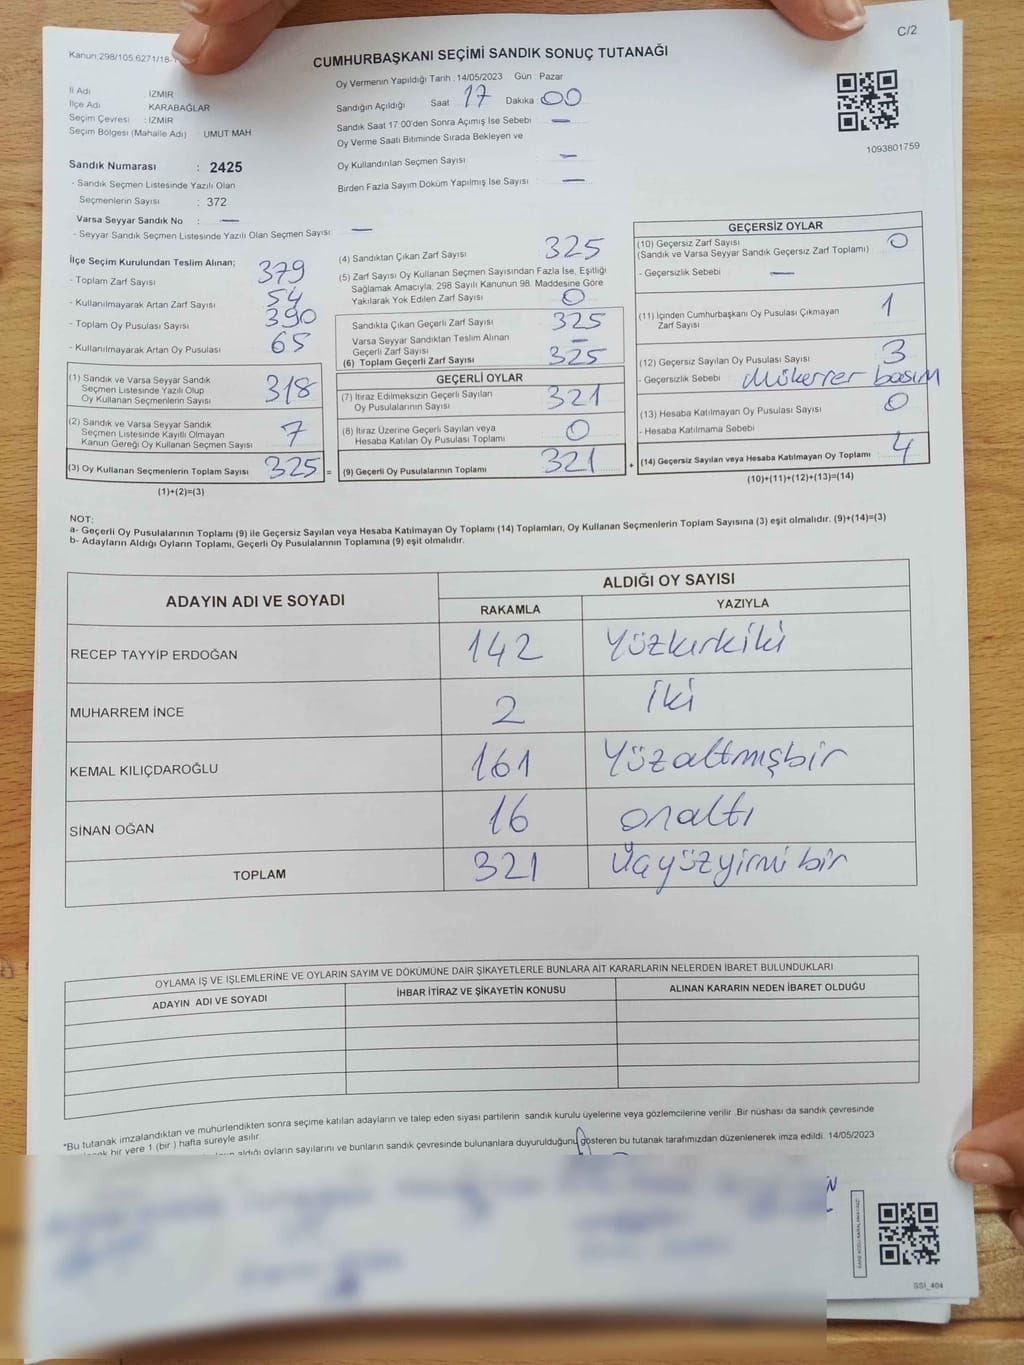 C/2
Kanun:298/105,6271/18-
CUMHURBAŞKANI SEÇİMİ SANDIK SONUÇ TUTANAĞI
Oy Vermenin Yapıldığı Tarih :14/05/2023 Gün : Pazar
İl Adı : İZMİR
İlçe Adı : KARABAĞLAR
Seçim Çevresi : İZMİR
Seçim Bölgesi (Mahalle Adı) : UMUT MAH
Sandığın Açıldığı Saat 17 Dakika 00
Sandık Saat 17:00'den Sonra Açımış İse Sebebi —
Oy Verme Saati Bitiminde Sırada Bekleyen ve
Oy Kullandırılan Seçmen Sayısı —
Birden Fazla Sayım Döküm Yapılmış İse Sayısı —
1093801759
Sandık Numarası : 2425
- Sandık Seçmen Listesinde Yazılı Olan
Seçmenlerin Sayısı : 372
Varsa Seyyar Sandık No : —
- Seyyar Sandık Seçmen Listesinde Yazılı Olan Seçmen Sayısı: —
İlçe Seçim Kurulundan Teslim Alınan;
- Toplam Zarf Sayısı 379
- Kullanılmayarak Artan Zarf Sayısı 54
- Toplam Oy Pusulası Sayısı 390
- Kullanılmayarak Artan Oy Pusulası 65
(1) Sandık ve Varsa Seyyar Sandık
Seçmen Listesinde Yazılı Olup
Oy Kullanan Seçmenlerin Sayısı 318
(2) Sandık ve Varsa Seyyar Sandık
Seçmen Listesinde Kayıtlı Olmayan
Kanun Gereği Oy Kullanan Seçmen Sayısı 7
(3) Oy Kullanan Seçmenlerin Toplam Sayısı 325 =
(1)+(2)=(3)
(4) Sandıktan Çıkan Zarf Sayısı 325
(5) Zarf Sayısı Oy Kullanan Seçmen Sayısından Fazla İse, Eşitliği
Sağlamak Amacıyla, 298 Sayılı Kanunun 98. Maddesine Göre
Yakılarak Yok Edilen Zarf Sayısı 0
Sandıkta Çıkan Geçerli Zarf Sayısı 325
Varsa Seyyar Sandıktan Teslim Alınan
Geçerli Zarf Sayısı —
(6) Toplam Geçerli Zarf Sayısı 325
GEÇERLİ OYLAR
(7) İtiraz Edilmeksizin Geçerli Sayılan
Oy Pusulalarının Sayısı 321
(8) İtiraz Üzerine Geçerli Sayılan veya
Hesaba Katılan Oy Pusulası Toplamı 0
(9) Geçerli Oy Pusulalarının Toplamı 321 +
GEÇERSİZ OYLAR
(10) Geçersiz Zarf Sayısı 0
(Sandık ve Varsa Seyyar Sandık Geçersiz Zarf Toplamı)
- Geçersizlik Sebebi —
(11) İçinden Cumhurbaşkanı Oy Pusulası Çıkmayan
Zarf Sayısı 1
(12) Geçersiz Sayılan Oy Pusulası Sayısı 3
- Geçersizlik Sebebi Mükerrer basım
(13) Hesaba Katılmayan Oy Pusulası Sayısı 0
- Hesaba Katılmama Sebebi
(14) Geçersiz Sayılan veya Hesaba Katılmayan Oy Toplamı 4
(10)+(11)+(12)+(13)=(14)
NOT:
a- Geçerli Oy Pusulalarının Toplamı (9) ile Geçersiz Sayılan veya Hesaba Katılmayan Oy Toplamı (14) Toplamları, Oy Kullanan Seçmenlerin Toplam Sayısına (3) eşit olmalıdır. (9)+(14)=(3)
b- Adayların Aldığı Oyların Toplamı, Geçerli Oy Pusulalarının Toplamına (9) eşit olmalıdır.
ADAYIN ADI VE SOYADI
ALDIĞI OY SAYISI
RAKAMLA YAZIYLA
RECEP TAYYİP ERDOĞAN 142 Yüzkırkiki
MUHARREM İNCE 2 iki
KEMAL KILIÇDAROĞLU 161 Yüzaltmışbir
SİNAN OĞAN 16 onaltı
TOPLAM 321 Üçyüzyirmi bir
OYLAMA İŞ VE İŞLEMLERİNE VE OYLARIN SAYIM VE DÖKÜMÜNE DAİR ŞİKAYETLERLE BUNLARA AİT KARARLARIN NELERDEN İBARET BULUNDUKLARI
ADAYIN ADI VE SOYADI İHBAR İTİRAZ VE ŞİKAYETİN KONUSU ALINAN KARARIN NEDEN İBARET OLDUĞU
*Bu tutanak imzalandıktan ve mühürlendikten sonra seçime katılan adayların ve talep eden siyasi partilerin sandık kurulu üyelerine veya gözlemcilerine verilir .Bir nüshası da sandık çevresinde
bir yere 1 (bir ) hafta süreyle asılır.
aldığı oyların sayılarını ve bunların sandık çevresinde bulunanlara duyurulduğunu gösteren bu tutanak tarafımızdan düzenlenerek imza edildi. 14/05/2023
SSI_404